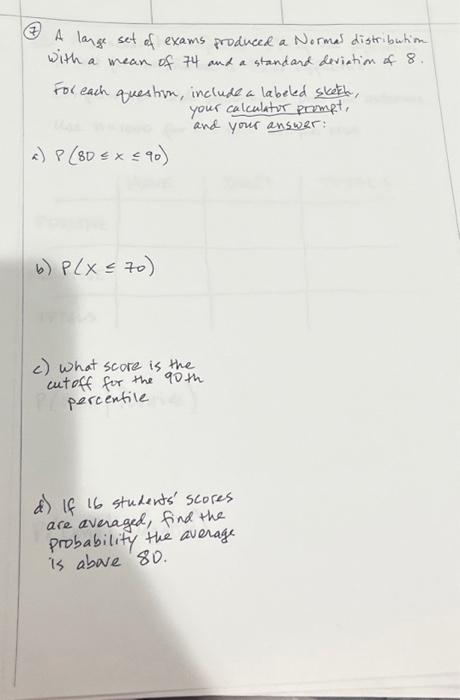 7 A large set of exams produced a Normal distribution
with a mean of 74 and a standard deviation of 8.
For each question, include a labeled sketch,
your calculator prompt,
and your answer:
a) P(80 ≤ x ≤ 90)
b) P(X ≤ 70)
c) What score is the
cutoff for the 90th
percentile
d) If 16 students' scores
are averaged, find the
probability the average
is above 80.